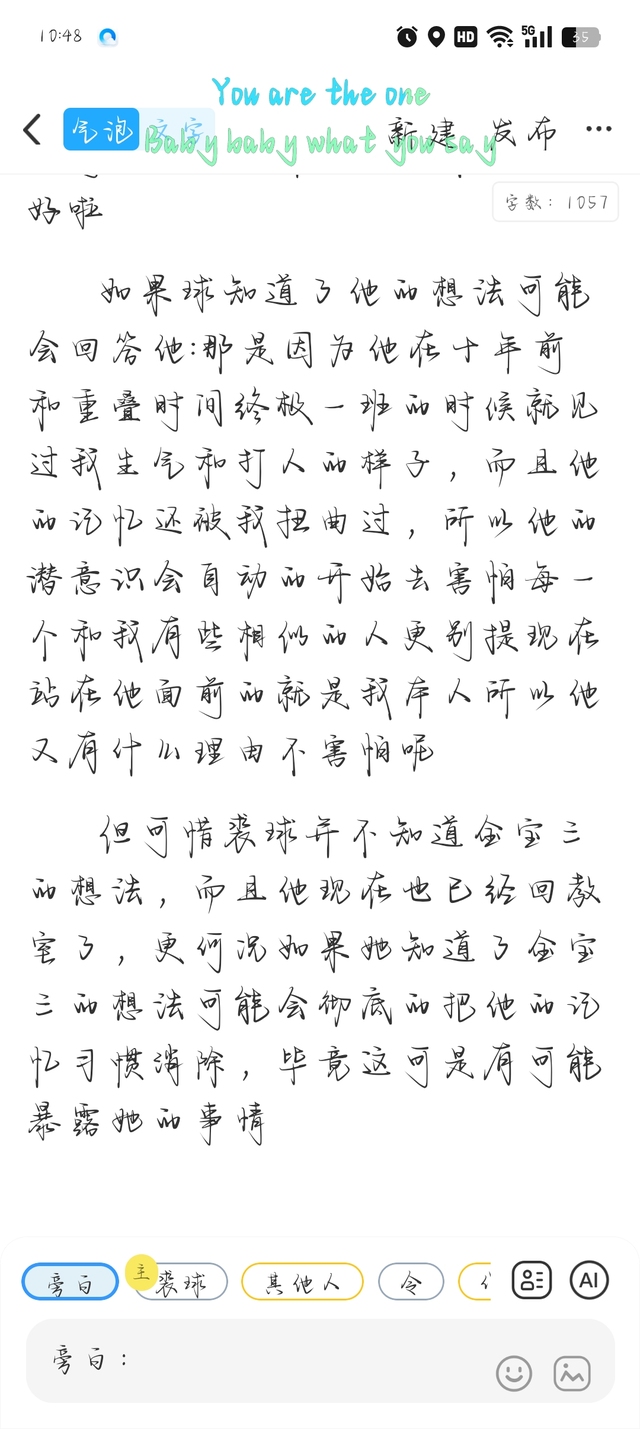 10:48
HD
5G
35
You are the one
Baby baby what you say
气泡 文字
新建 发布
字数：1057
好啦
如果球知道了他的想法可能
会回答他:那是因为他在十年前
和重叠时间终极一班的时候就见
过我生气和打人的样子，而且他
的记忆还被我扭曲过，所以他的
潜意识会自动的开始去害怕每一
个和我有些相似的人更别提现在
站在他面前的就是我本人所以他
又有什么理由不害怕呢
但可惜裘球并不知道金宝三
的想法，而且他现在也已经回教
室了，更何况如果她知道了金宝
三的想法可能会彻底的把他的记
忆习惯消除，毕竟这可是有可能
暴露她的事情
旁白
主
裘球
其他人
令
AI
旁白：